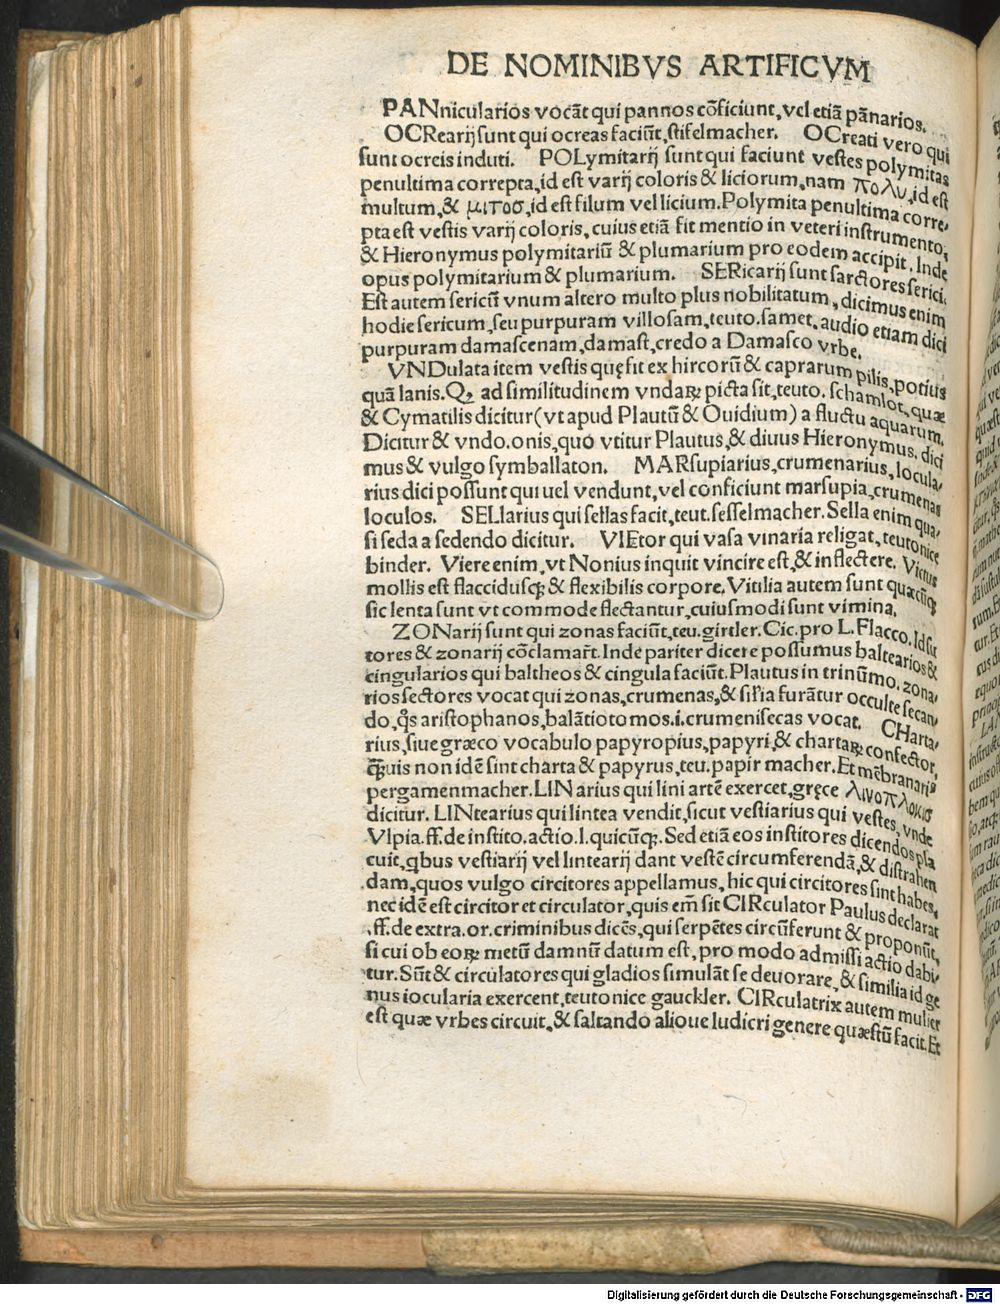 DE NOMINIBVS ARTIFICVM
PANnicularios vocãt qui pannos cõficiunt, vel etiã pãnarios.
OCRearij sunt qui ocreas faciũt, stifelmacher. OCreati vero qui
sunt ocreis induti. POLymitarij sunt qui faciunt vestes polymitas
penultima correpta, id est varij coloris & liciorum, nam πολυ, id est
multum, & μιτοσ, id est filum vel licium. Polymita penultima corre-
pta est vestis varij coloris, cuius etiã fit mentio in veteri instrumento,
& Hieronymus polymitariũ & plumarium pro eodem accipit. Inde
opus polymitarium & plumarium. SERicarij sunt sarctores serici.
Est autem sericũ vnum altero multo plus nobilitatum, dicimus enim
hodie sericum, seu purpuram villosam, teuto. samet, audio etiam dici
purpuram damascenam, damast, credo a Damasco vrbe.
VNDulata item vestis quę fit ex hircorũ & caprarum pilis, potius
quã lanis. Qꝫ ad similitudinem vndaꝝ picta sit, teuto. schamlot, quæ
& Cymatilis dicitur (vt apud Plautũ & Ouidium) a fluctu aquarum.
Dicitur & vndo. onis, quo vtitur Plautus, & diuus Hieronymus. dici
mus & vulgo symballaton. MARsupiarius, crumenarius, locula-
rius dici possunt qui uel vendunt, vel conficiunt marsupia, crumenas
loculos. SELlarius qui sellas facit, teut. sesselmacher. Sella enim qua-
si seda a sedendo dicitur. VIEtor qui vasa vinaria religat, teutonice
binder. Viere enim, vt Nonius inquit vincire est, & inflectere. Victus
mollis est flaccidusqꝫ & flexibilis corpore. Vitilia autem sunt quæcũqꝫ
sic lenta sunt vt commode flectantur, cuiusmodi sunt vimina.
ZONarij sunt qui zonas faciũt, teu. girtler. Cic. pro L. Flacco. Id su
tores & zonarij cõclamar̃t. Inde pariter dicere possumus baltearios &
cingularios qui baltheos & cingula faciũt. Plautus in trinũmo. zona-
rios sectores vocat qui zonas, crumenas, & sil̃ia furãtur occulte secan-
do, q̃s aristophanos, balãtiotomos .i. crumenisecas vocat. CHarta-
rius, siue græco vocabulo papyropius, papyri, & chartaꝝ confector,
q̃uis non idẽ sint charta & papyrus, teu. papir macher. Et mẽbranariꝰ
pergamenmacher. LINarius qui lini artẽ exercet, gręce λινοπλοκισ
dicitur. LINtearius qui lintea vendit, sicut vestiarius qui vestes, vnde
Vlpia. ff. de instito. actio. l. quicũqꝫ. Sed etiã eos institores dicendos pla
cuit, qbus vestiarij vel lintearij dant vestẽ circumferendã, & distrahen
dam, quos vulgo circitores appellamus, hic qui circitores sint habes,
nec idẽ est circitor et circulator, quis em̃ sit CIRculator Paulus declarat
.ff. de extra. or. criminibus dicẽs, qui serpẽtes circũferunt & proponũt,
si cui ob eoꝝ metũ damnũ datum est, pro modo admissi actio dabi-
tur. Sũt & circulatores qui gladios simulãt se deuorare, & similia id ge
nus iocularia exercent, teutonice gauckler. CIRculatrix autem mulier
est quæ vrbes circuit, & saltando alioue ludicri genere quæstũ facit. Et
Digitalisierung gefördert durch die Deutsche Forschungsgemeinschaft - DFG